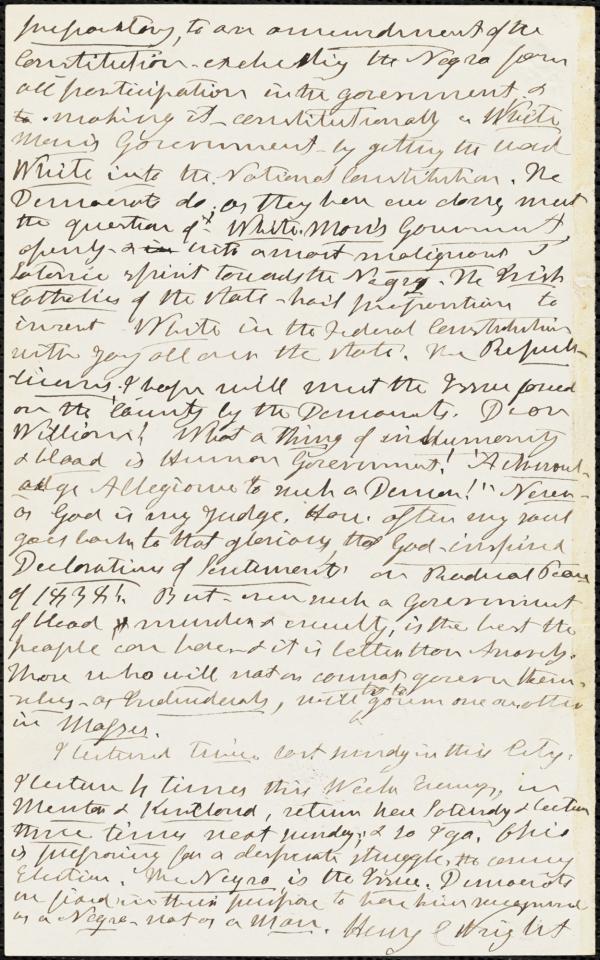 preparatory, to an amendment of the
Constitution - excluding the Negro from
all participation in the government &
to making it - constitutionally a White
Man's Government - by getting the word
White into the National Constitution. The
Democrats do, as they here are doing, meet
the question of a White Man's Government,
openly - & in with a most malignant &
Satanic spirit towards the Negro. The Irish
Catholics of the State - hail proposition to
insert White in the Federal Constitution
with joy all over the State. The Repub-
licans, I hope will meet the Issue forced
on the County by the Democrats. Dear
William! What a thing of inhumanity
& blood is Human Government! "Acknowl-
edge Allegiance to such a Demon!" Never -
as God is my Judge. How often my soul
goes back to that glorious, the God-inspired
Declaration of Sentiments on Radical Peace
of 1838! But - even such a Government
of blood, murder & cruelty, is the best the
people can have - & it is better than Anarchy.
Those who will not or cannot govern them-
selves - as Individuals, will try to govern one another
in Masses.
I lectured three last sunday in this City.
I lecture 4 times this Week Evenings, in
Mentor & Kirtland, return here Saturday & lecture
three times next sunday, & so I go. Ohio
is preparing for a desperate struggle, the coming
Election. The Negro is the Issue. Democrats
in their purpose to have him recognized
as a Negro - not as a Man. Henry C Wright